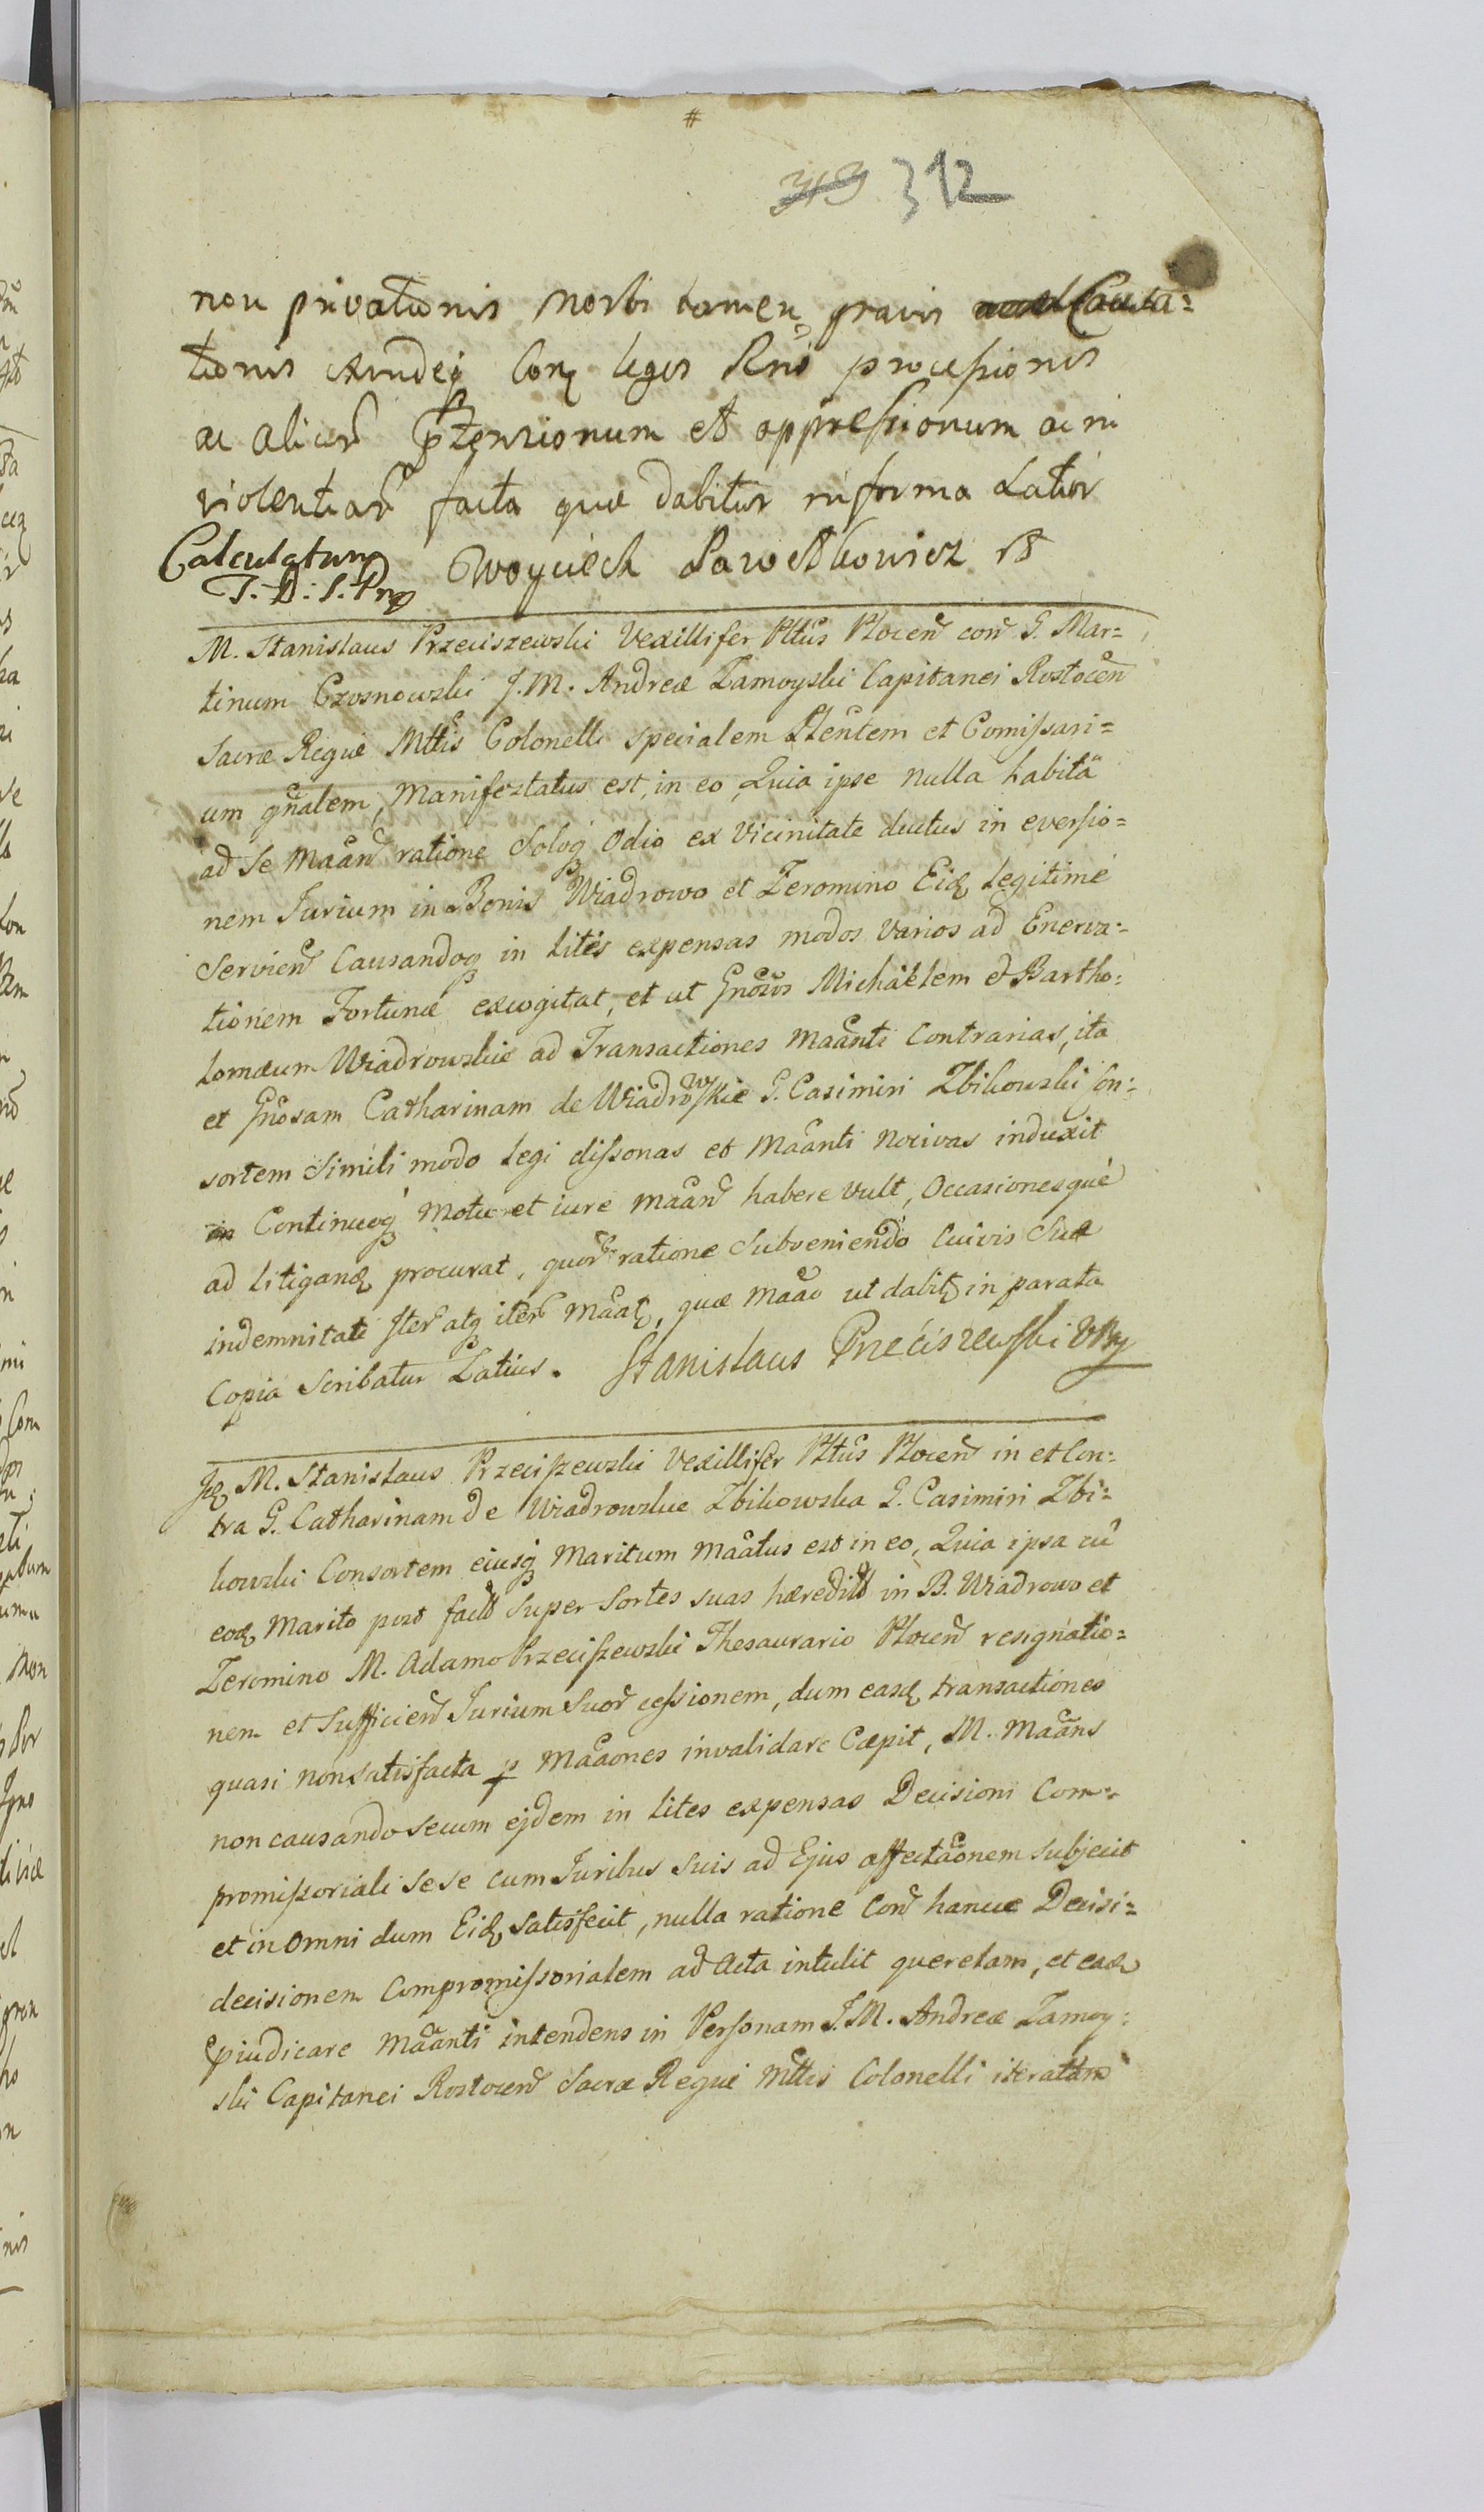 #
319 312
non privationis Morbi tamen gravis
tionis eiusdeq Conq leges Rni processionis
ac alicur ptensionum et oppressionum ac in
violentiar facta quæ dabitur in forma Latior
Calculatum Woyciech Pawelkowicz
M. Stanislaus Przeciszewski Vexillifer Pltus Plocen con G. Mar=
tinum Crosnowski J. M. Andreæ Zamoyski Capitanei Rostocen
Sacræ Regiæ Mttis Colonelli specialem Plentem et Comissari=
um gnalem, Manifestatus est, in eo, Quia ipse nulla habita
ad se Maan ratione Soloq Odio ex Vicinitate ductus in eversio=
nem Jurium in Bonis Wiadrowo et Zeromino Eid legitimé
Servien Causandoq in lites expensas modos varios ad Enerva=
tionem Fortunæ excogitat, et ut Gnosos Michaëlem & Bartho=
lomæum Wiadrowskie ad Transactiones Maanti Contrarias, ita
et Gnosam Catharinam de Wiadrowskie G. Casimiri Zbikowski Con=
sortem Simili modo legi dissonas et Maanti nocivas induxit
in Continuoq Motu et iure Maan habere vult, Occasionesqué
ad litigand procurat, quor ratione Subveniendo Cuivis Suæ
indemnitati Iter atq iter Maat, quæ Maao ut dabit in parata
Copia Scribatur Latius. Stanislaus Przeciszewski
Id M. Stanislaus Przeciszewski Vexillifer Pltus Plocen in et Con=
tra G. Catharinam de Wiadrowskie Zbikowska G. Casimiri Zbi=
kowski Consortem eiusq Maritum Maatus est in eo, Quia ipsa cu
eod Marito post fact Super Sortes suas hæredit in B. Wiadrowo et
Zeromino M. Adamo Przeciszewski Thesaurario Plocen resignatio=
nem et Sufficien Jurium Suor cessionem, dum easd transactiones
quasi non satisfacta p Maaones invalidare Cæpit, M. Maans
non causando secum ejdem in lites expensas Decisioni Com=
promissoriali sese cum Juribus Suis ad Ejus affectaonem subjecit
et in omni dum Eid satisfecit, nulla ratione Con hance Decisi=
decisionem Compromissorialem ad Acta intulit querelam, et ead
pjudicare Maanti intendens in Personam J. M. Andreæ Zamoy=
ski Capitanei Rostocen Sacræ Regiæ Mttis Colonelli iteratam